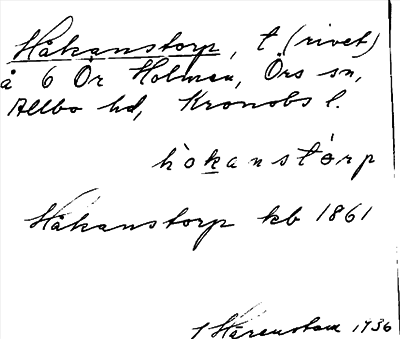 Håkanstorp, t (rivet)
å 6 Ör Holmen, Örs sn,
Allbo hd, Kronobs l.
hòkanstórp
Håkanstorp kb 1861
1936